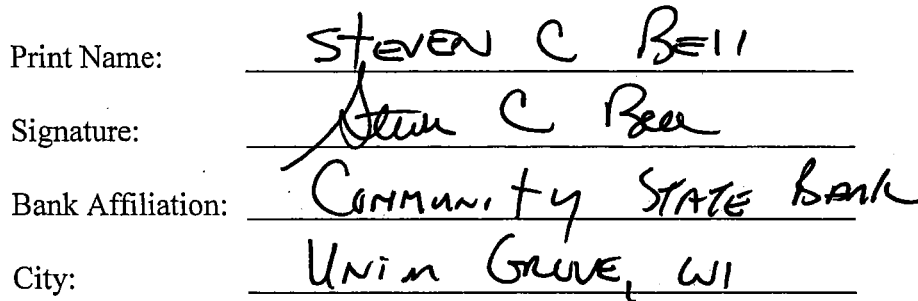 Print Name: STEVEN C BELL
Signature: Steven C Bell
Bank Affiliation: COMMUNITY STATE BANK
City: UNION GROVE, WI